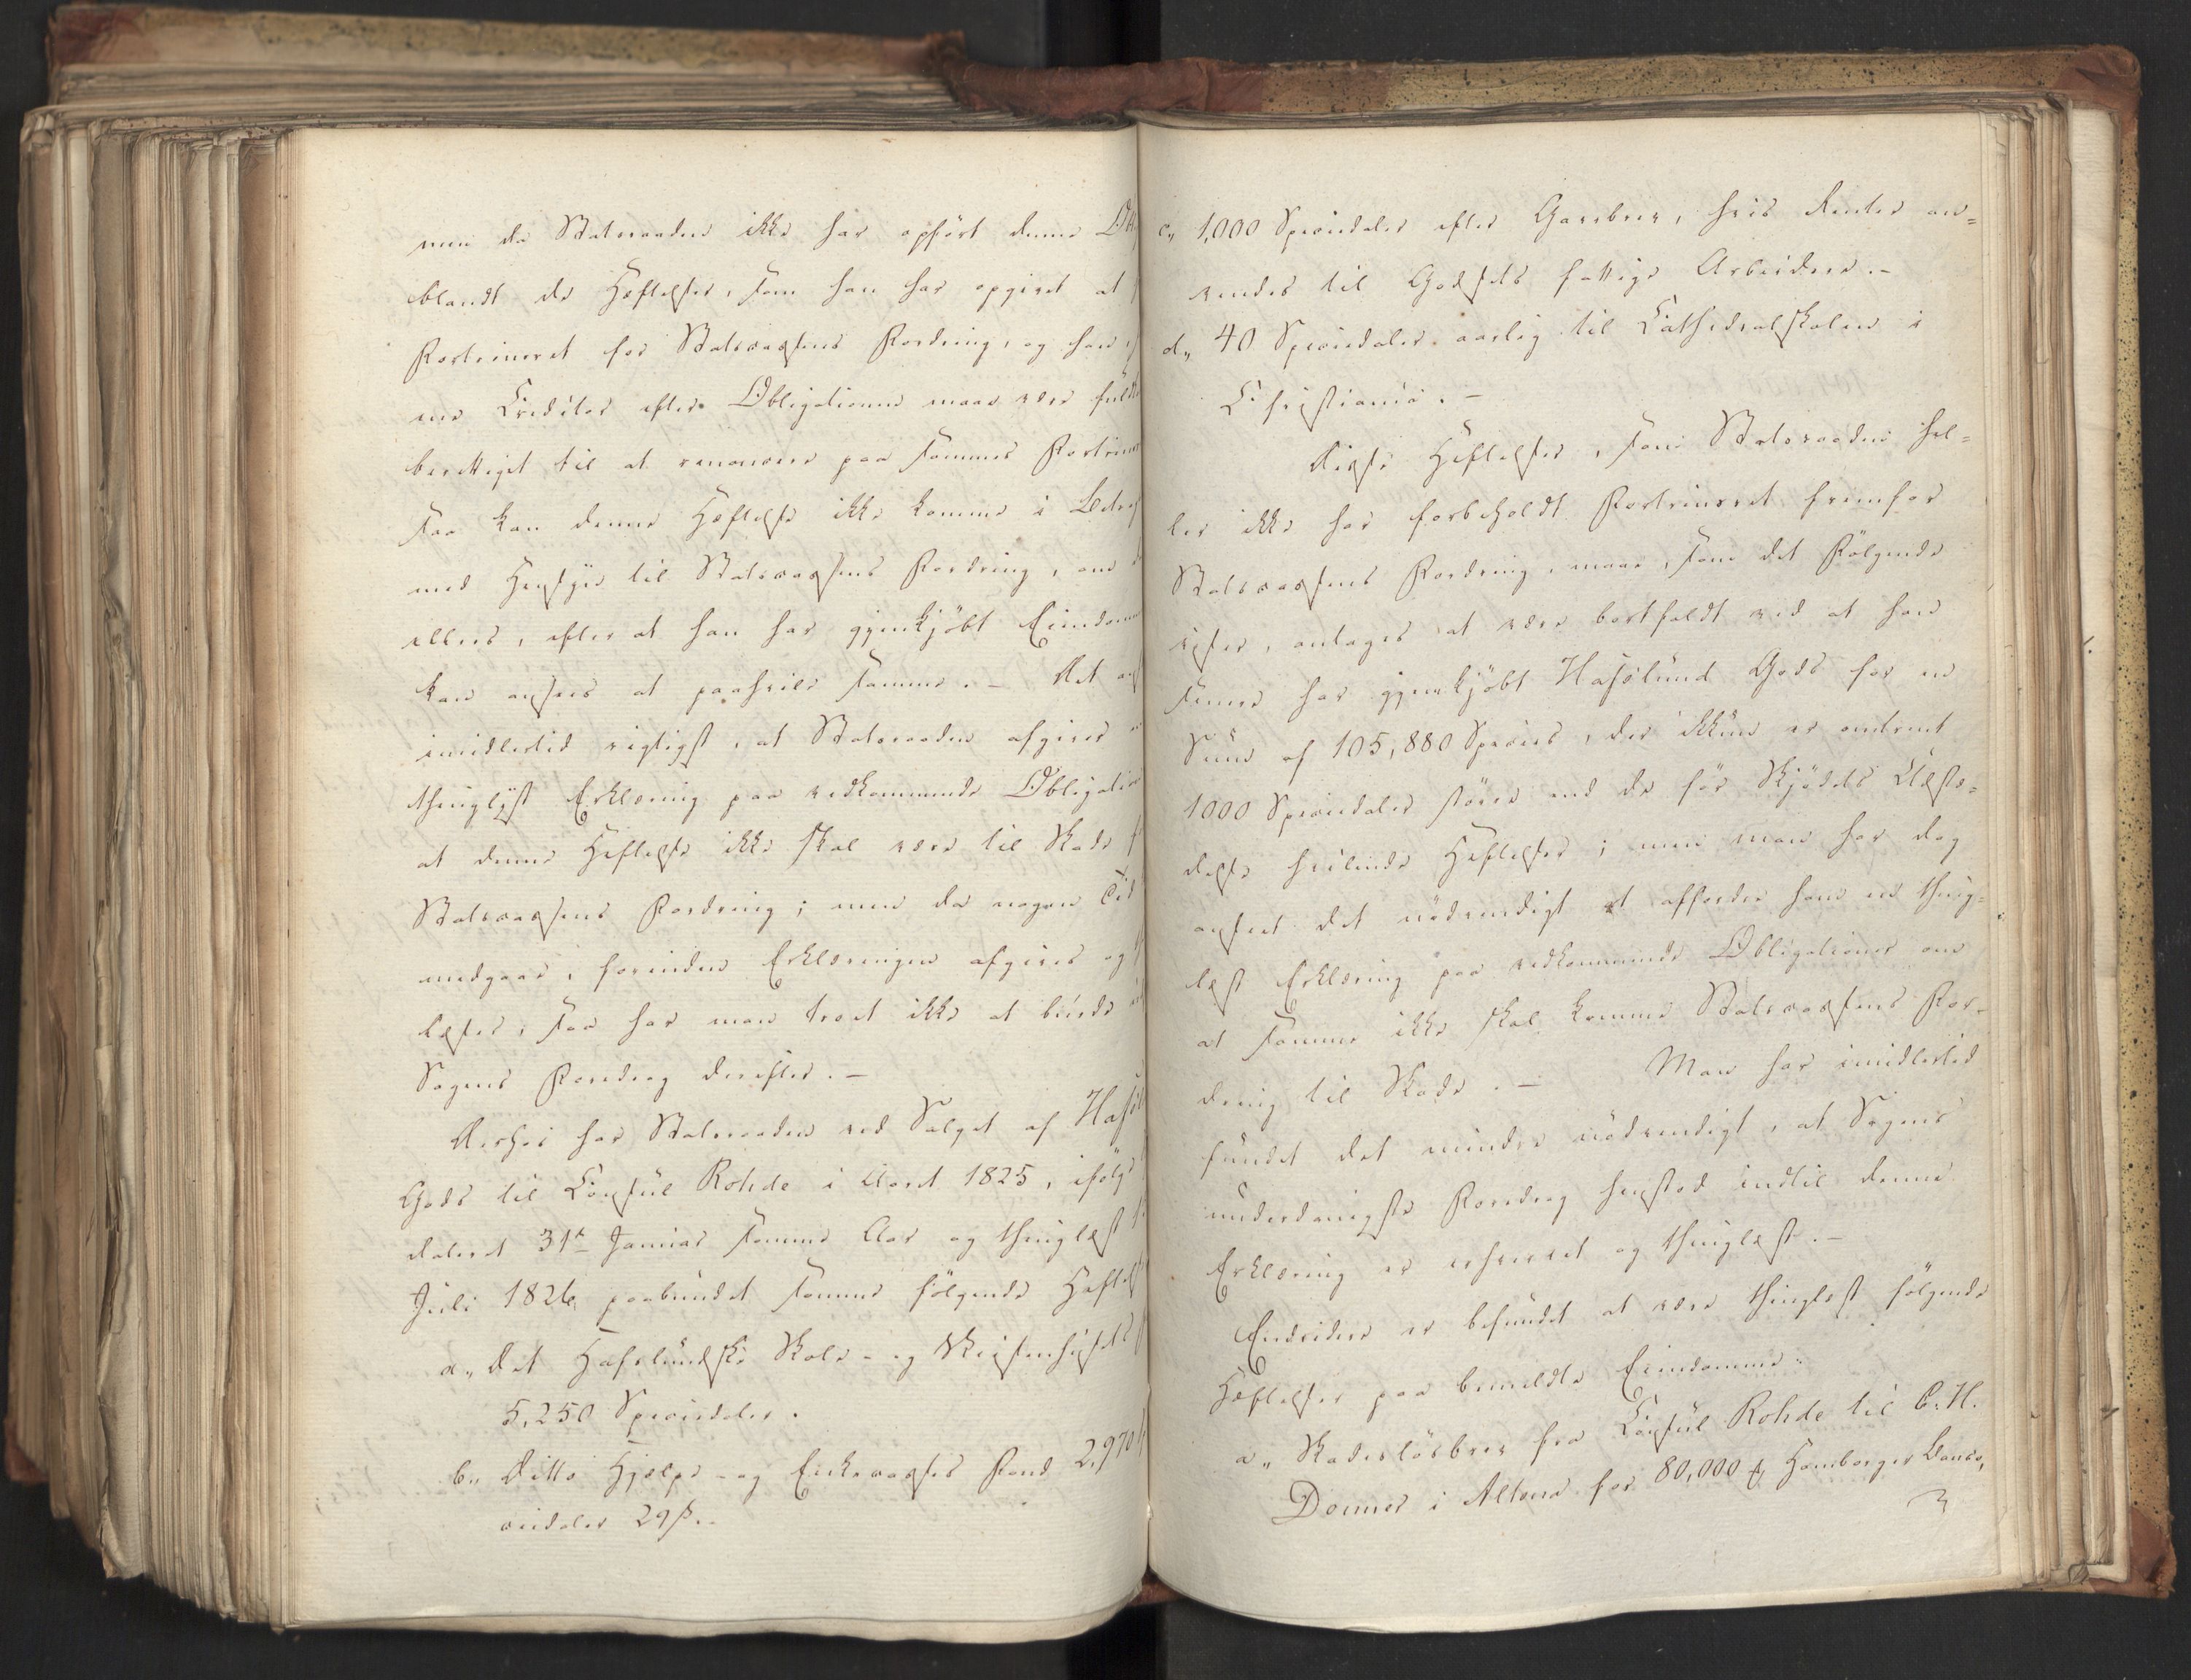 men da Statsraaden ikke har opført denne
blandt de Hæftelser, som han har opgivet at
Fortrinnet for Statscassens Fordring, og han,
nes Creditor efter Obligationen maa være fuldt
berettiget til at renoncere paa sammes Fortrin
saa kan denne Hæftelse ikke komme i Betragt
med Hensyn til Statscassens Fordring, om
ellers, efter at han har gjenkjøbt Eiendom
kan ansees at paahvile samme. – Det
imidlertid rigtigst, at Statsraaden afgiver
thinglyst Erklæring paa vedkommende Obligation
at denne Hæftelse ikke skal være til Skade
Statscassens Fordring; men da nogen Tid
medgaar, forinden Erklæringen afgives og
læses, saa har man troet ikke at burde
Sagens Foredrag derefter. –
Derhos har Statsraaden ved Salget af Hafsl
Gods til Consul Rohde i Aaret 1825, ifølge
dateret 31te Januar samme Aar og thinglæst
Juli 1826, paabundet samme følgende Hæftels
a„ Det Hafslundske Skole- og
5,250 Speciedaler.
b„ Ditto Hjelpe- og Enkecasses Fond 2,970
ciedaler 29 ß. –
c„ 1,000 Speciedaler efter Gavebrev, hvis Renter an=
vendes til Godsets fattige Arbeidere. –
d„ 40 Speciedaler aarlig til Cathedralskolen i
Christiania. –
Disse Hæftelser, som Statsraaden hel=
ler ikke har forbeholdt Fortrinnet fremfor
Statscassens Fordring, maa, som det Følgende
viser, antages at være bortfaldt ved at han
senere har gjenkjøbt Hafslund Gods for en
Sum af 105,880 Species, der ikkun er omtrent
1000 Speciedaler større end de før Skjødets Udste=
delse hvilende Hæftelser; men man har dog
anseet det nødvendigt at affordre ham en thing=
læst Erklæring paa vedkommende Obligationer om
at samme ikke skal komme Statscassens For=
dring til Skade. – Man har imidlertid
fundet det mindre nødvendigt, at Sagens
underdanigste Foredrag henstod indtil denne
Erklæring er erhvervet og thinglæst. –
Endvidere er befundet at være thinglæst følgende
Hæftelser paa bemeldte Eiendomme:
a„ Skadesløsbrev fra Consul Rohde til C. H.
Donner i Altona for 80,000 ₰ Hamborger Banco,